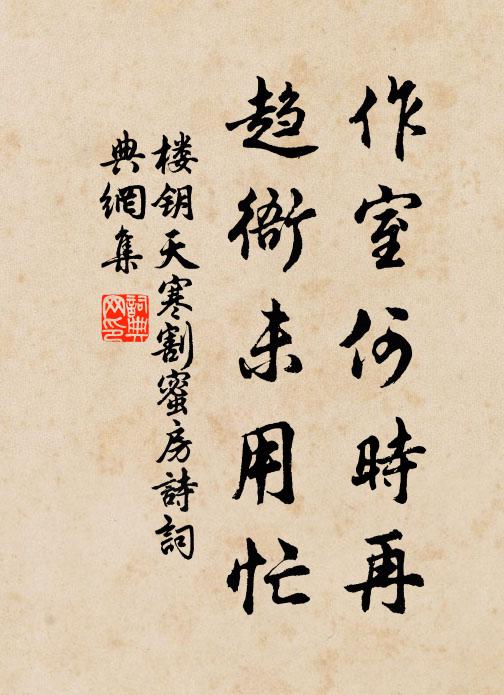 作室何時再
趋衙未用忙
楼钥天寒割蜜房詩詞
典網集
詞典
网印